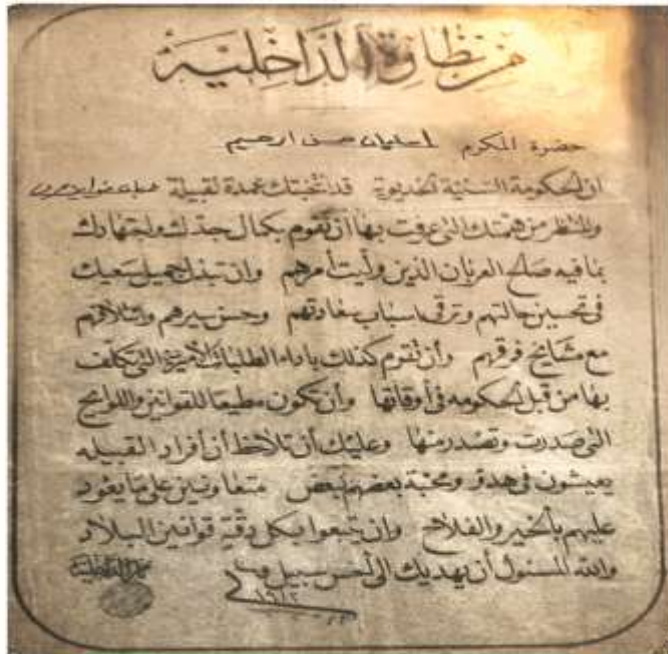 من نظارة الداخلية
حضرة المكرم سليمان حسن ارحيم
ان الحكومة السنية الخديوية قد انتخبتك عمدة لقبيلة
والمنتظر من همتك التى عرفت بها أن تقوم بكمال جدك واجتهادك
بما فيه صلح العربان الذين وليت أمرهم وان تبذل جميل سعيك
فى تحسين حالتهم وترقى اسباب سعادتهم وحسن سيرهم وائتلافهم
مع مشايخ فرقهم وأن تقوم كذلك باداء الطلبات الأميرية التى تكلف
بها من قبل الحكومه فى أوقاتها وأن تكون مطيعا للقوانين واللوايح
التى صدرت وتصدر منها وعليك أن تلاحظ أن أفراد القبيله
يعيشون فى هدو ومحبة بعضهم لبعض متعاونين على ما يعود
عليهم بالخير والفلاح وان يتبعوا بكل دقة قوانين البلاد
والله المسئول أن يهديك الى أحسن سبيل